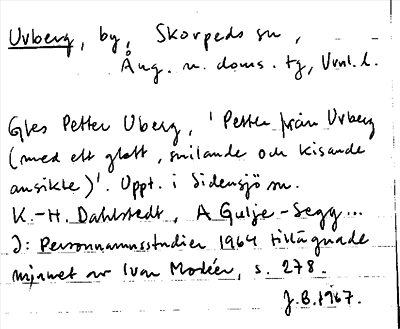 Urberg, by, Skorpeds sn,
Ång. n. doms. tg, Vrnl. l.
Gles Petter Uberg, 'Petter från Urberg
(med ett glatt, smilande och kisande
ansikte)'. Uppt. i Sidensjö sn.
K.-H. Dahlstedt, A Gulje-Segg...
I: Personnamnsstudier 1964 tillägnade
minnet av Ivar Modéer, s. 278.
J.B. 1967.